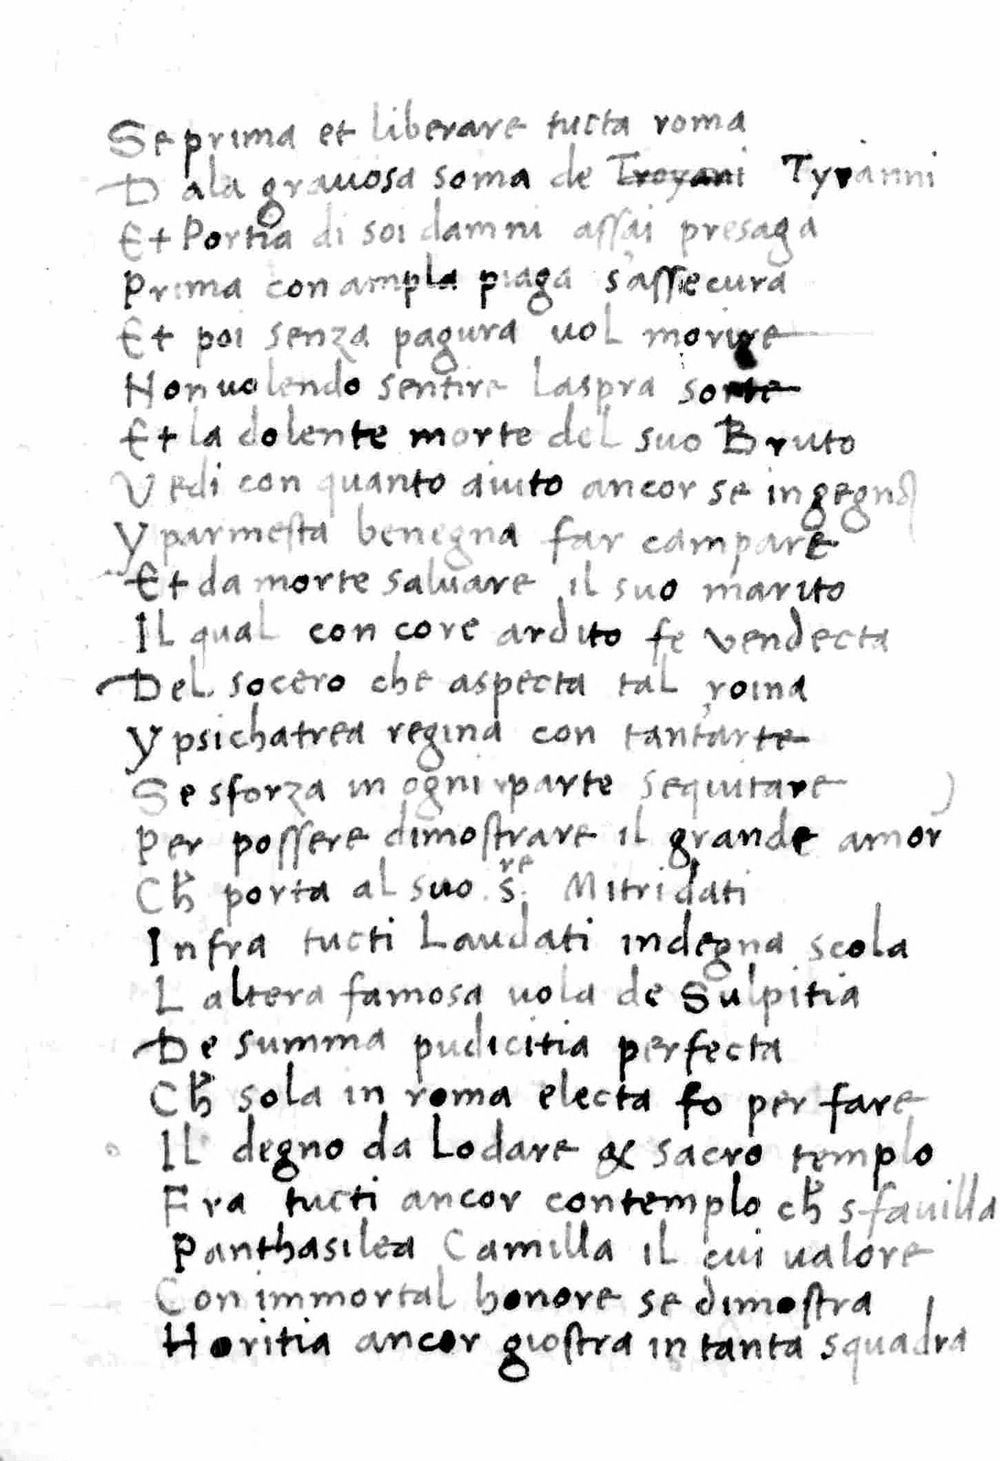 Se prima et liberare tucta roma
Dala grauosa soma de Troyani Tyranni
Et Portia di soi damni assai presaga
Prima con ampla piaga s'assecura
Et poi senza pagura uol morire
Non uolendo sentire laspra sorte
Et la dolente morte del suo Bruto
Vedi con quanto aiuto ancor se ingegno
Yparmesta benegna far campare
Et da morte saluare il suo marito
Il qual con core ardito fe vendecta
Del socero che aspecta tal roina
Ypsichatrea regina con tant'arte
Se sforza in ogni parte sequitare
Per possere dimostrare il grande amor
Ch̄ porta al suo .s.re Mitridati
Infra tucti Laudati indegna scola
L altera famosa uola de Sulpitia
De summa pudicitia perfecta
Ch̄ sola in roma electa fo per fare
Il degno da Lodare & sacro templo
Fra tucti ancor contemplo ch̄ sfauilla
Panthasilea Camilla il cui ualore
Con immortal honore se dimostra
Horitia ancor giostra in tanta squadra